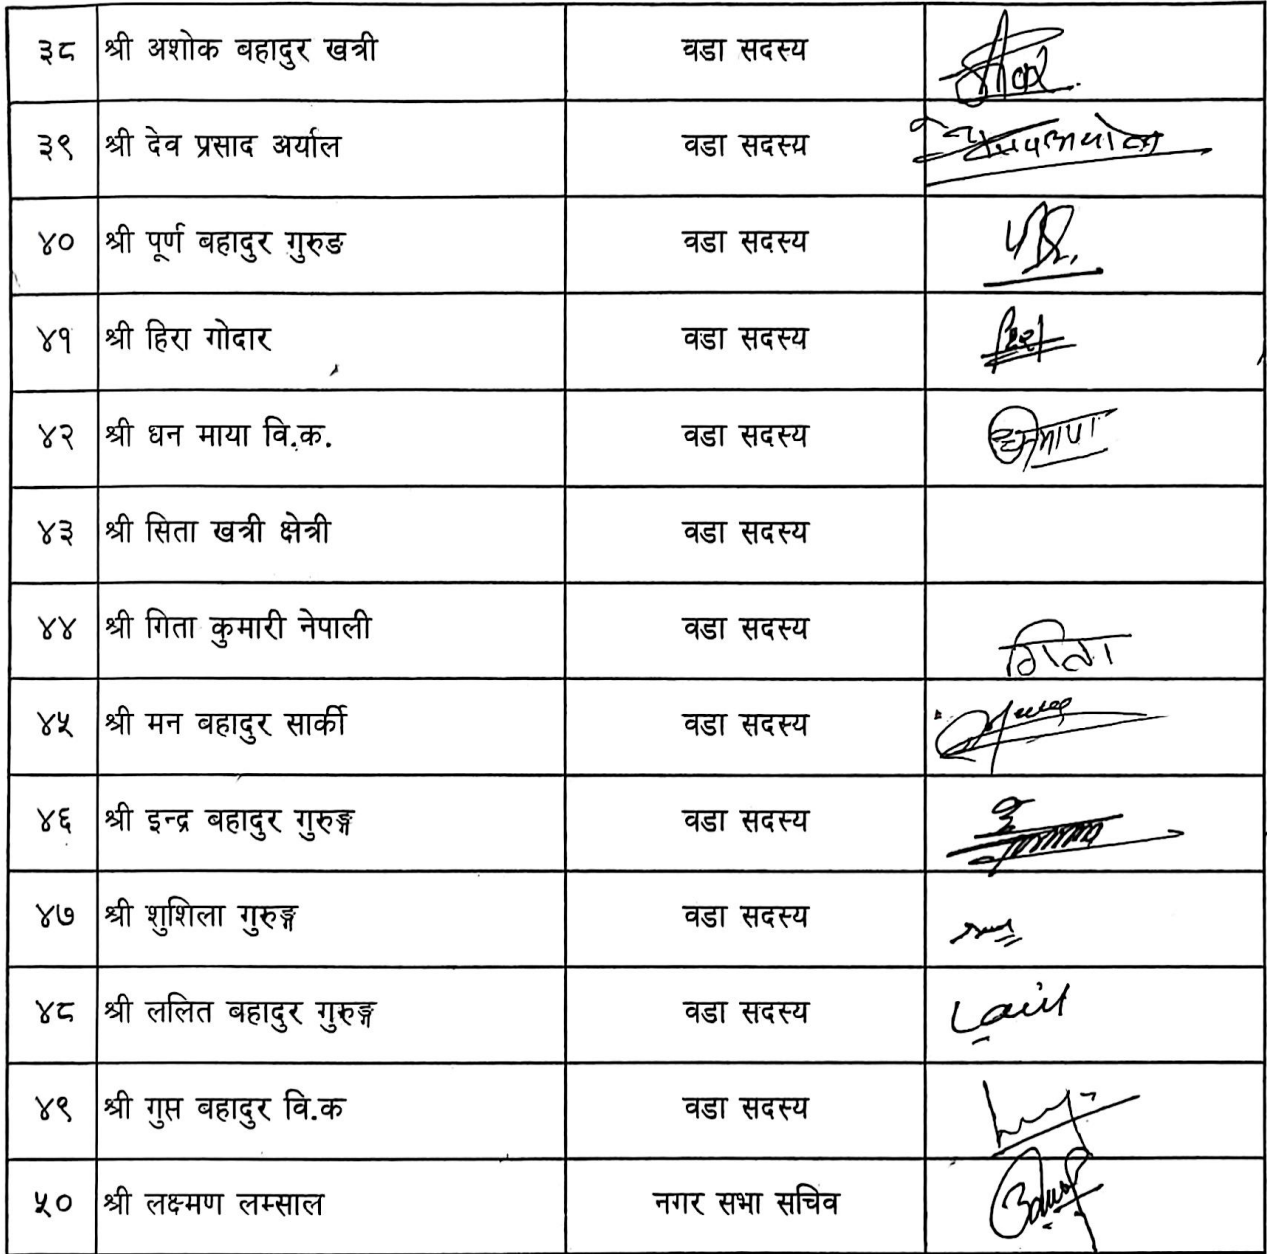 ३८ श्री अशोक बहादुर खत्री वडा सदस्य
३९ श्री देव प्रसाद अर्याल वडा सदस्य
४० श्री पूर्ण बहादुर गुरुङ वडा सदस्य
४१ श्री हिरा गोदार वडा सदस्य
४२ श्री धन माया वि.क. वडा सदस्य
४३ श्री सिता खत्री क्षेत्री वडा सदस्य
४४ श्री गिता कुमारी नेपाली वडा सदस्य गिता
४५ श्री मन बहादुर सार्की वडा सदस्य
४६ श्री इन्द्र बहादुर गुरुङ्ग वडा सदस्य
४७ श्री शुशिला गुरुङ्ग वडा सदस्य
४८ श्री ललित बहादुर गुरुङ्ग वडा सदस्य
४९ श्री गुप्त बहादुर वि.क वडा सदस्य
५० श्री लक्ष्मण लम्साल नगर सभा सचिव